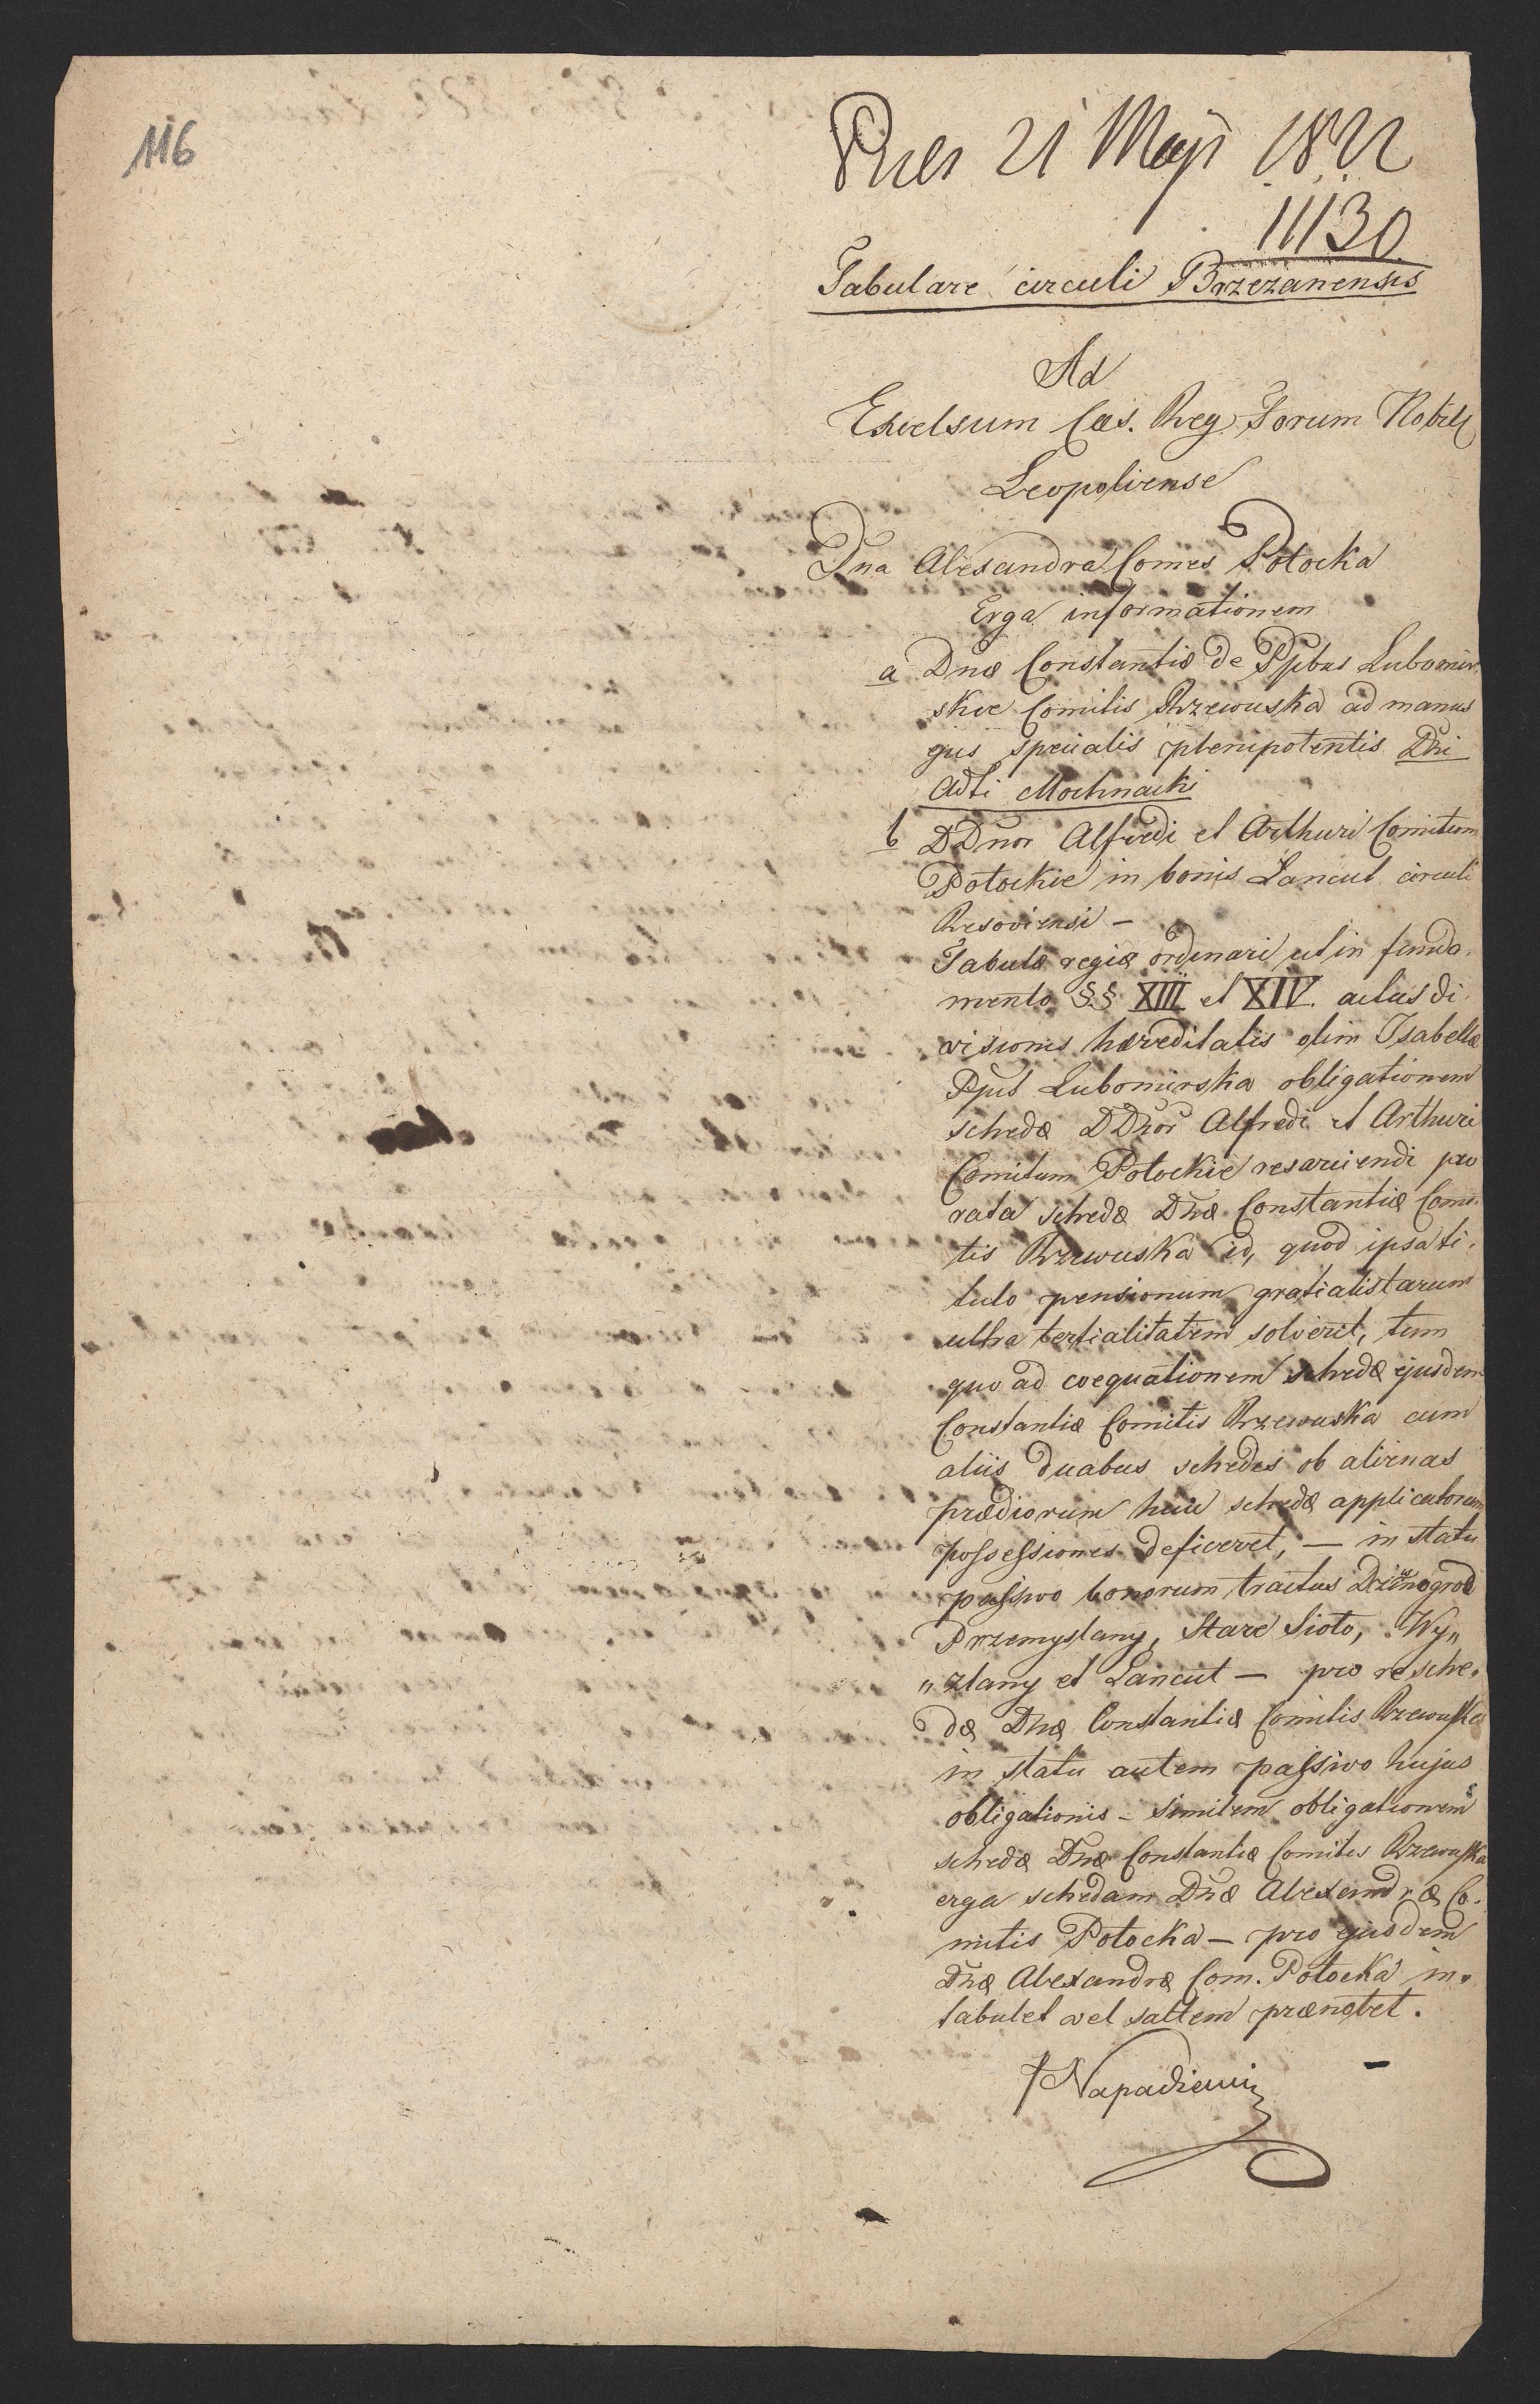 116
Præs 21 Maji 1822
11130
Tabulare circuli Brzezanensis
Ad
Excelsum Cæs. Reg. Forum Nobil
Leopoliense
Dna Alexandra Comes Potocka
Erga informationem
a Dnæ Constantiæ de Ppbus Lubomir
skie Comitis Rzewuska ad manus
ejus specialis plenipotentis Dni
Adti Mochnacki
b DDnor Alfredi et Arthuri Comitum
Potockie in bonis Lancut circuli
Resoviensi –
Tabulæ regiæ ordinari ut in funda.
mento §§ XIII et XIV. actus di.
visionis hæreditatis olim Isabellæ
Ppis Lubomirska obligationem
schedæ DDnor Alfredi et Arthuri
Comitum Potockie resarciendi pro
rata schedæ Dnæ Constantiæ Comi.
tis Rzewuska id, quod ipsa ti.
tulo pensionum gratialistarum
ultra tertialitatem solverit, tum
quo ad coequationem schedæ ejusdem
Constantiæ Comitis Rzewuska cum
aliis duabus schedes ob alienas
prædiorum huic schedæ applicatorum
possessiones deficeret, — in statu
passivo bonorum tractus Dzwinogrod
Przemyslany, Stare Sioto, Wy„
„zlany et Lancut — pro re sche„
dæ Dnæ Constantiæ Comitis Rzewuska
in statu autem passivo hujus
obligationis – similem obligationem
schedæ Dnæ Constantiæ Comites Rzewuska
erga schedam Dnæ Alexandræ Co.
mitis Potocka — pro ejusdem
Dnæ Alexandræ Com. Potocka in.
tabulet vel saltem prænotet.
Napadiewicz